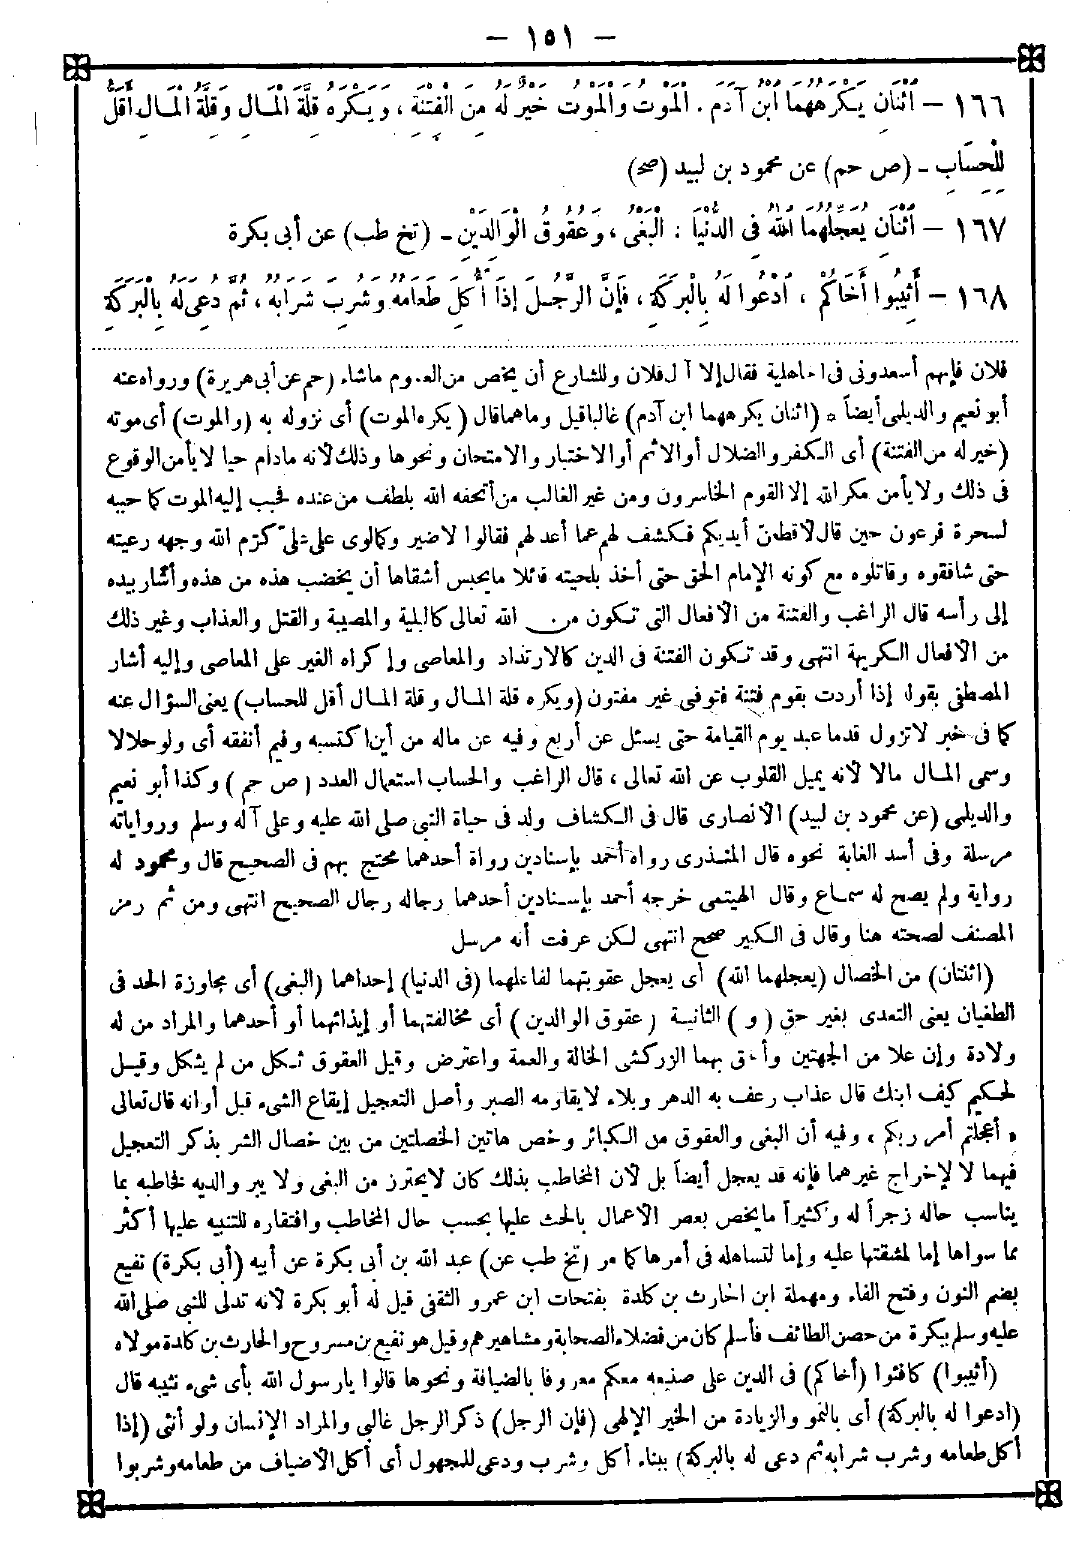 — ١٥١ —
١٦٦ — اثْنَانِ يَكْرَهُهُمَا ابْنُ آدَمَ . الْمَوْتُ وَالْمَوْتُ خَيْرٌ لَهُ مِنَ الْفِتْنَةِ ، وَيَكْرَهُ قِلَّةَ الْمَالِ وَقِلَّةُ الْمَالِ أَقَلُّ
لِلْحِسَابِ - (ص حم) عن محمود بن لبيد (صح)
١٦٧ — اثْنَانِ يُعَجِّلُهُمَا اللهُ فِي الدُّنْيَا : الْبَغْىُ ، وَعُقُوقُ الْوَالِدَيْنِ - (تخ طب) عن أبى بكرة
١٦٨ — أَثِيبُوا أَخَاكُمْ ، ادْعُوا لَهُ بِالْبَرَكَةِ ، فَإِنَّ الرَّجُلَ إِذَا أُكِلَ طَعَامُهُ وَشُرِبَ شَرَابُهُ ، ثُمَّ دُعِىَ لَهُ بِالْبَرَكَةِ
فلان فإنهم أسعدونى فى الجاهلية فقال إلا آل فلان وللشارع أن يخص من العموم ماشاء (حم عن أبى هريرة) ورواه عنه
أبو نعيم والديلمى أيضاً * (اثنان يكرههما ابن آدم) غالبا قيل وما هما قال (يكره الموت) أى نزوله به (والموت) أى موته
(خير له من الفتنة) أى الكفر والضلال أو الاثم أو الاختبار والامتحان ونحوها وذلك لأنه مادام حيا لا يأمن الوقوع
فى ذلك ولا يأمن مكر الله إلا القوم الخاسرون ومن غير الغالب من أتحفه الله بلطف من عنده فحبب إليه الموت كما حببه
لسحرة فرعون حين قال لأقطعن أيديكم فكشف لهم عما أعد لهم فقالوا لاضير وكما لوى على علىّ كرّم الله وجهه رعيته
حتى شاققوه وقاتلوه مع كونه الإمام الحق حتى أخذ بلحيته قائلا مايحبس أشقاها أن يخضب هذه من هذه وأشار بيده
إلى رأسه قال الراغب والفتنة من الأفعال التى تكون من الله تعالى كالبلية والمصيبة والقتل والعذاب وغير ذلك
من الأفعال الكريهة انتهى وقد تكون الفتنة فى الدين كالارتداد والمعاصى وإكراه الغير على المعاصى وإليه أشار
المصطفى بقوله إذا أردت بقوم فتنة فتوفى غير مفتون (ويكره قلة المال وقلة المال أقل للحساب) يعنى السؤال عنه
كما فى خبر لاتزول قدما عبد يوم القيامة حتى يسئل عن أربع وفيه عن ماله من أين اكتسبه وفيم أنفقه أى ولو حلالا
وسمى المال مالا لأنه يميل القلوب عن الله تعالى ، قال الراغب والحساب استعمال العدد (ص حم) وكذا أبو نعيم
والديلمى (عن محمود بن لبيد) الأنصارى قال فى الكشاف ولد فى حياة النبى صلى الله عليه وعلى آله وسلم ورواياته
مرسلة وفى أسد الغابة نحوه قال المنذرى رواه أحمد بإسنادين رواة أحدهما محتج بهم فى الصحيح قال ومحمود له
رواية ولم يصح له سماع وقال الهيتمى خرجه أحمد بإسنادين أحدهما رجاله رجال الصحيح انتهى ومن ثم رمز
المصنف لصحته هنا وقال فى الكبير صحح انتهى لكن عرفت أنه مرسل
(اثنتان) من الخصال (يعجلهما الله) أى يعجل عقوبتهما لفاعلهما (فى الدنيا) إحداهما (البغى) أى مجاوزة الحد فى
الطغيان يعنى التعدى بغير حق (و) الثانية (عقوق الوالدين) أى مخالفتهما أو إيذائهما أو أحدهما والمراد من له
ولادة وإن علا من الجهتين وألحق بهما الزركشى الخالة والعمة واعترض وقيل العقوق ثكل من لم يثكل وقيل
لحكيم كيف ابنك قال عذاب رعف به الدهر وبلاء لايقاومه الصبر وأصل التعجيل إيقاع الشىء قبل أوانه قال تعالى
« أعجلتم أمر ربكم ، وفيه أن البغى والعقوق من الكبائر وخص هاتين الخصلتين من بين خصال الشر بذكر التعجيل
فيهما لا لإخراج غيرهما فإنه قد يعجل أيضاً بل لأن المخاطب بذلك كان لايحترز من البغى ولا يبر والديه فخاطبه بما
يناسب حاله زجراً له وكثيراً مايخص بعض الأعمال بالحث عليها بحسب حال المخاطب وافتقاره للتنبيه عليها أكثر
مما سواها إما لمشقتها عليه وإما لتساهله فى أمرها كما مر (تخ طب عن) عبد الله بن أبى بكرة عن أبيه (أبى بكرة) نفيع
بضم النون وفتح الفاء ومهملة ابن الحارث بن كلدة بفتحات ابن عمرو الثقفى قيل له أبو بكرة لأنه تدلى للنبى صلى الله
عليه وسلم ببكرة من حصن الطائف فأسلم كان من فضلاء الصحابة ومشاهيرهم وقيل هو نفيع بن مسروح والحارث بن كلدة مولاه
(أثيبوا) كافئوا (أخاكم) فى الدين على صنيعه معكم معروفا بالضيافة ونحوها قالوا يارسول الله بأى شىء نثيبه قال
(ادعوا له بالبركة) أى بالنمو والزيادة من الخير الإلهى (فإن الرجل) ذكر الرجل غالبى والمراد الإنسان ولو أنثى (إذا
أكل طعامه وشرب شرابه ثم دعى له بالبركة) ببناء أكل وشرب ودعى للمجهول أى أكل الأضياف من طعامه وشربوا